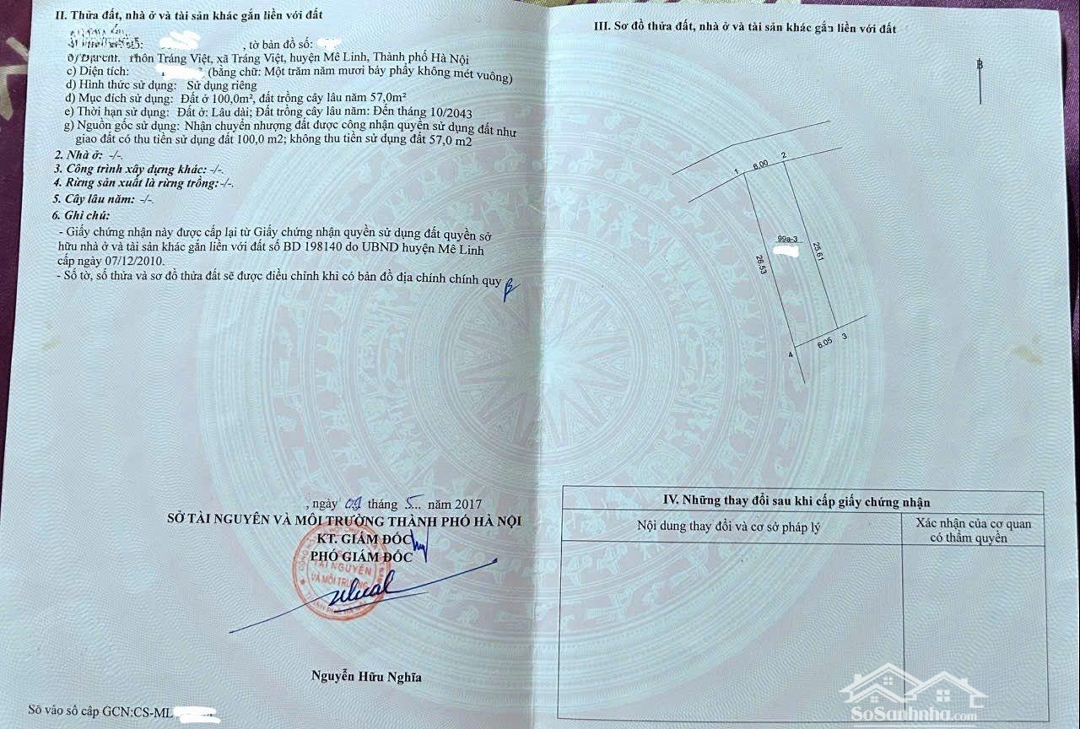 II. Thửa đất, nhà ở và tài sản khác gắn liền với đất
, tờ bản đồ số:
Thôn Tráng Việt, xã Tráng Việt, huyện Mê Linh, Thành phố Hà Nội
c) Diện tích: (bằng chữ: Một trăm năm mươi bảy phẩy không mét vuông)
d) Hình thức sử dụng: Sử dụng riêng
đ) Mục đích sử dụng: Đất ở 100,0m², đất trồng cây lâu năm 57,0m²
e) Thời hạn sử dụng: Đất ở: Lâu dài; Đất trồng cây lâu năm: Đến tháng 10/2043
g) Nguồn gốc sử dụng: Nhận chuyển nhượng đất được công nhận quyền sử dụng đất như
giao đất có thu tiền sử dụng đất 100,0 m2; không thu tiền sử dụng đất 57,0 m2
2. Nhà ở: -/-.
3. Công trình xây dựng khác: -/-.
4. Rừng sản xuất là rừng trồng: -/-.
5. Cây lâu năm: -/-.
6. Ghi chú:
- Giấy chứng nhận này được cấp lại từ Giấy chứng nhận quyền sử dụng đất quyền sở
hữu nhà ở và tài sản khác gắn liền với đất số BD 198140 do UBND huyện Mê Linh
cấp ngày 07/12/2010.
- Số tờ, số thửa và sơ đồ thửa đất sẽ được điều chỉnh khi có bản đồ địa chính chính quy
, ngày 09 tháng 5 năm 2017
SỞ TÀI NGUYÊN VÀ MÔI TRƯỜNG THÀNH PHỐ HÀ NỘI
KT. GIÁM ĐỐC
PHÓ GIÁM ĐỐC
TÀI NGUYÊN
VÀ MÔI TRƯỜNG
Nguyễn Hữu Nghĩa
Số vào sổ cấp GCN:CS-ML
III. Sơ đồ thửa đất, nhà ở và tài sản khác gắn liền với đất
B
1
6.00
2
99a-3
26.53
25.61
4
6.05
3
IV. Những thay đổi sau khi cấp giấy chứng nhận
Nội dung thay đổi và cơ sở pháp lý
Xác nhận của cơ quan
có thẩm quyền
SoSanhnha.com